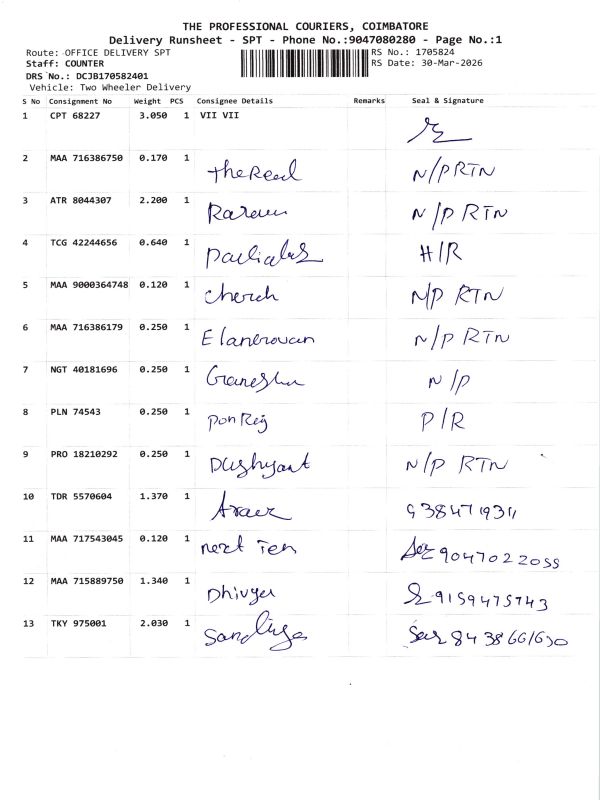 THE PROFESSIONAL COURIERS, COIMBATORE
Delivery Runsheet - SPT - Phone No.:9047080280 - Page No.:1
Route: OFFICE DELIVERY SPT RS No.: 1705824
Staff: COUNTER RS Date: 30-Mar-2026
DRS No.: DCJB170582401
Vehicle: Two Wheeler Delivery
S No Consignment No Weight PCS Consignee Details Remarks Seal & Signature
1 CPT 68227 3.050 1 VII VII
2 MAA 716386750 0.170 1 N/P RTN
3 ATR 8044307 2.200 1 N/P RTN
4 TCG 42244656 0.640 1 H/R
5 MAA 9000364748 0.120 1 N/P RTN
6 MAA 716386179 0.250 1 N/P RTN
7 NGT 40181696 0.250 1 N/P
8 PLN 74543 0.250 1 P/R
9 PRO 18210292 0.250 1 Dushyant N/P RTN
10 TDR 5570604 1.370 1
11 MAA 717543045 0.120 1 next 9047022055
12 MAA 715889750 1.340 1 9159475743
13 TKY 975001 2.030 1